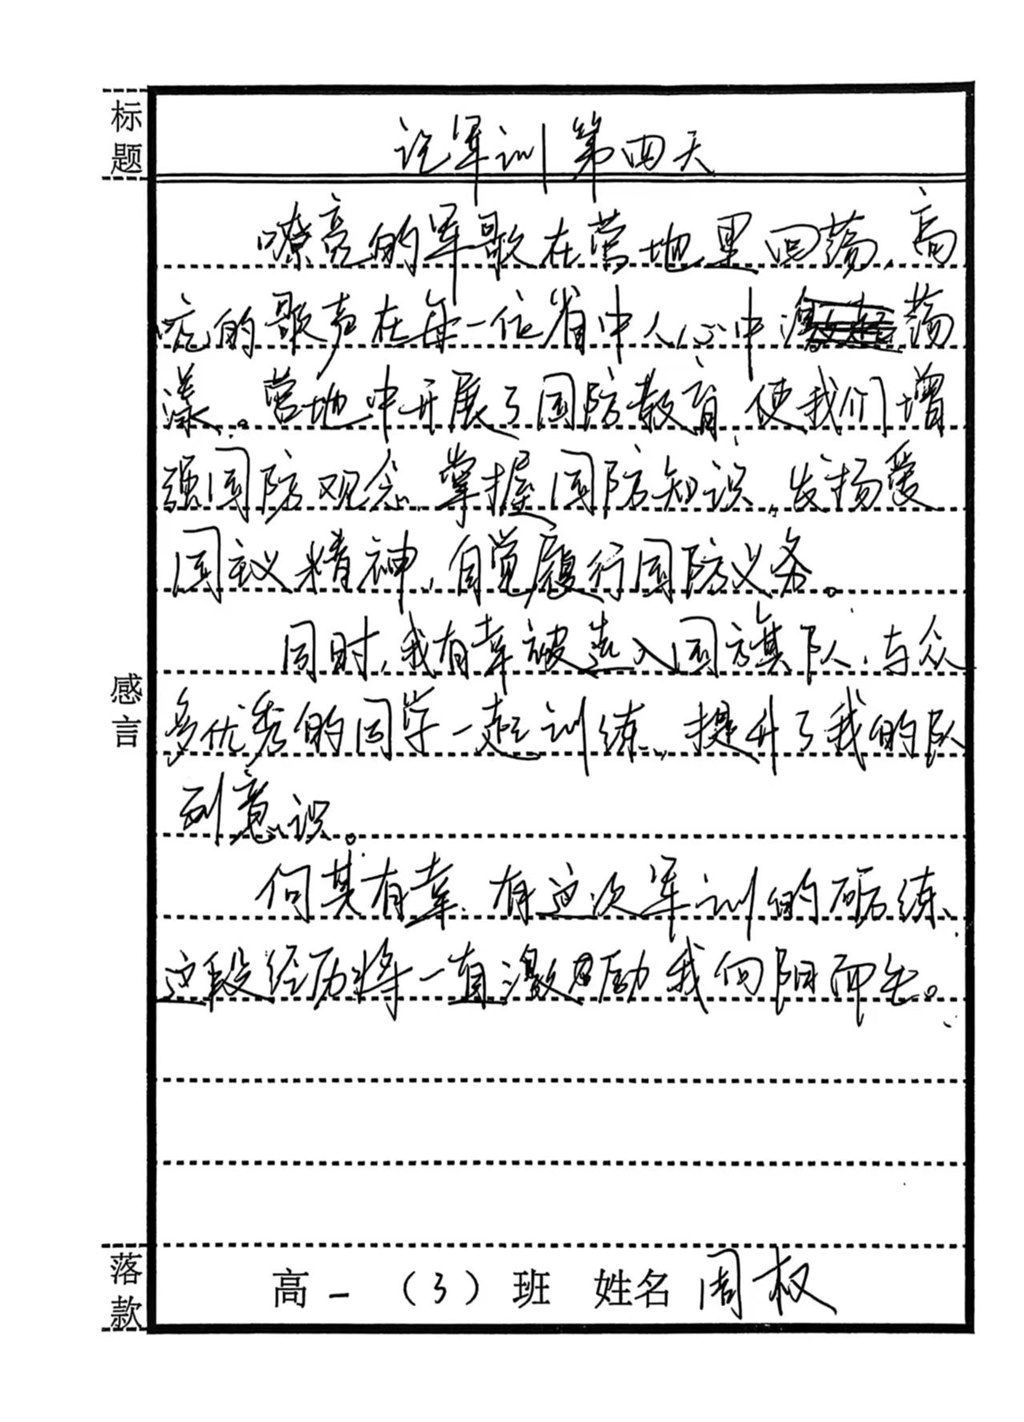 标题
记军训第四天
嘹亮的军歌在营地里回荡,高
亢的歌声在每一位省中人心中荡
漾。营地中开展了国防教育,使我们增
强国防观念,掌握国防知识,发扬爱
国主义精神,自觉履行国防义务。
同时,我有幸被选入国旗队,与众
多优秀的同学一起训练,提升了我的队
列意识。
感言
何其有幸,有这次军训的砺练,
这段经历将一直激励我向阳而生。
落款
高一(3)班 姓名 周权